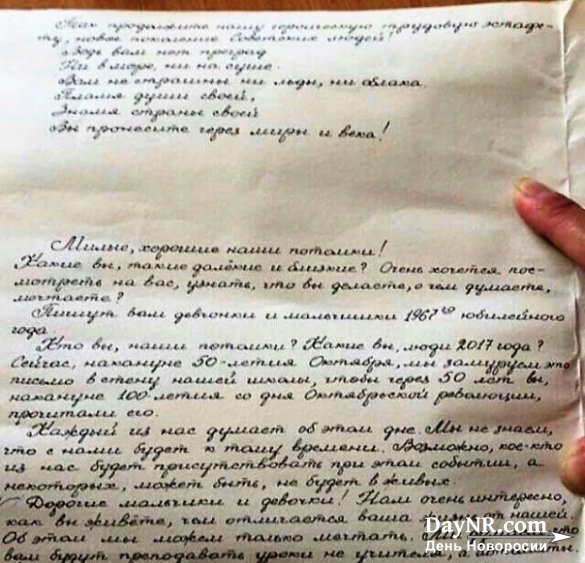 Так продолжите нашу героическую трудовую эстафе-
ту, новое поколение Советских людей!
Ведь вам нет преград
Ни в море, ни на суше.
Вам не страшны ни льды, ни облака.
Пламя души своей,
Знамя страны своей
Вы пронесите через миры и века!
Милые, хорошие наши потомки!
Какие вы, такие далёкие и близкие? Очень хочется пос-
мотреть на вас, узнать, что вы делаете, о чем думаете,
мечтаете?
Пишут вам девчонки и мальчишки 1967го юбилейного
года.
Кто вы, наши потомки? Какие вы, люди 2017 года?
Сейчас, накануне 50-летия Октября, мы замуруем это
письмо в стену нашей школы, чтобы через 50 лет вы,
накануне 100-летия со дня Октябрьской революции,
прочитали его.
Каждый из нас думает об этом дне. Мы не знаем,
что с нами будет к тому времени. Возможно, кое-кто
из нас будет присутствовать при этом событии, а
некоторых, может быть, не будет в живых.
Дорогие мальчики и девочки! Нам очень интересно,
как вы живёте, чем отличается ваша жизнь от нашей.
Об этом мы можем только мечтать. что
вам будут преподавать уроки не учителя, а
DayNR.com
День Новоросии